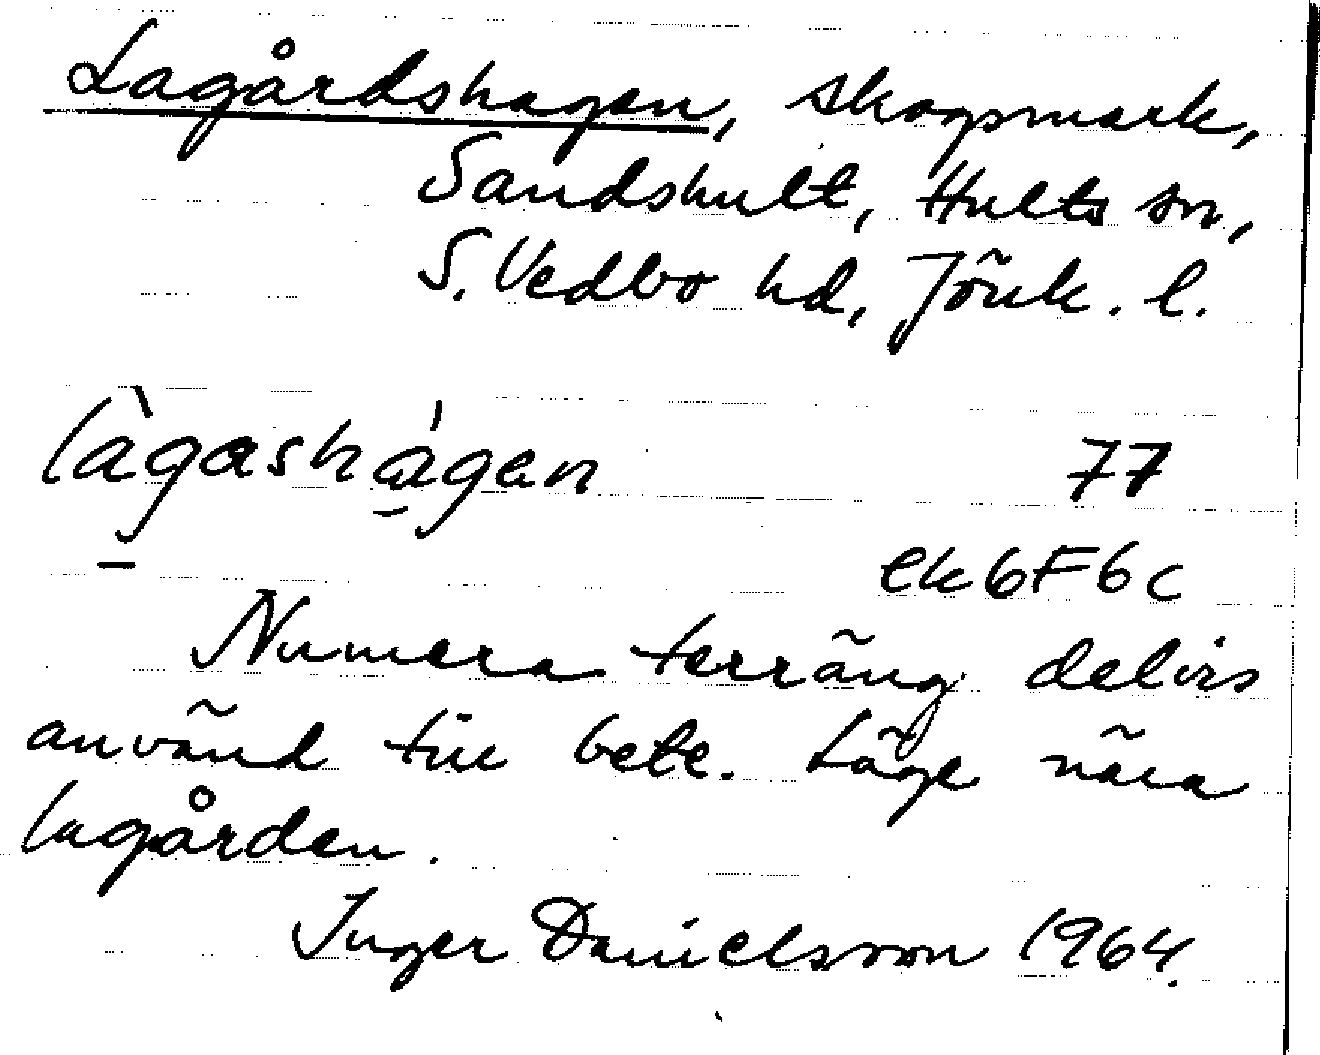 Lagårdshagen, skogsmark,
Sandshult, Hults sn,
S. Vedbo hd, Jönk. l.
làgashágen 77
ek 6F6c
Numera terräng delvis
använd till bete. Läge nära
lagården.
Inger Danielsson 1964.